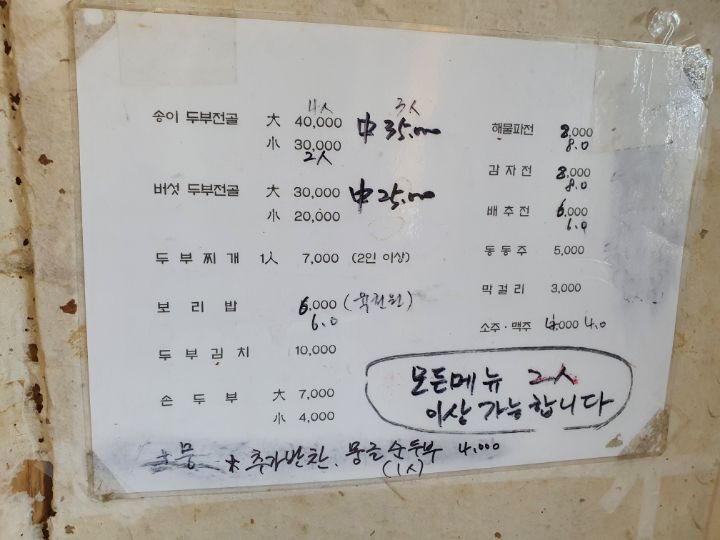 4人 3人
송이 두부전골 大 40,000 中 35,000
小 30,000
2人
버섯 두부전골 大 30,000 中 25,000
小 20,000
두부찌개 1人 7,000 (2인 이상)
보리밥 6,000 (육천원)
6.0
두부김치 10,000
손두부 大 7,000
小 4,000
추가반찬. 몽글순두부 4,000
(1人)
해물파전 8,000
8.0
감자전 8,000
8.0
배추전 6,000
6.0
동동주 5,000
막걸리 3,000
소주·맥주 4,000 4.0
모든메뉴 2人
이상 가능합니다